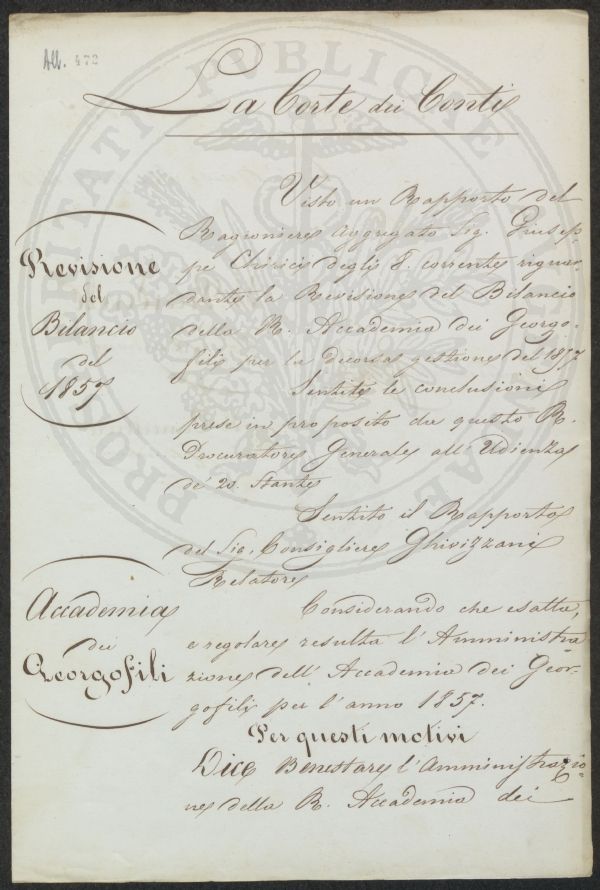 All. 472
La Corte dei Conti
Visto un Rapporto del
Ragioniere Aggregato Sig. Giusep-
pe Chirici degli 8. corrente riguar-
dante la Revisione del Bilancio
della R. Accademia dei Georgo-
fili per la decorsa gestione del 1857
Sentite le conclusioni
prese in proposito da questo R.
Procuratore Generale all'Udienza
de' 20. Stante
Sentito il Rapporto
del Sig. Consigliere Ghivizzani
Relatore
Considerando che esatta,
e regolare resulta l'Amministra
zione dell'Accademia dei Geor-
gofili per l'anno 1857.
Per questi motivi
Dice Benestare l'Amministrazio-
ne della R. Accademia dei
Revisione
del
Bilancio
del
1857
Accademia
dei
Georgofili
PROSPERITATI PUBLICAE